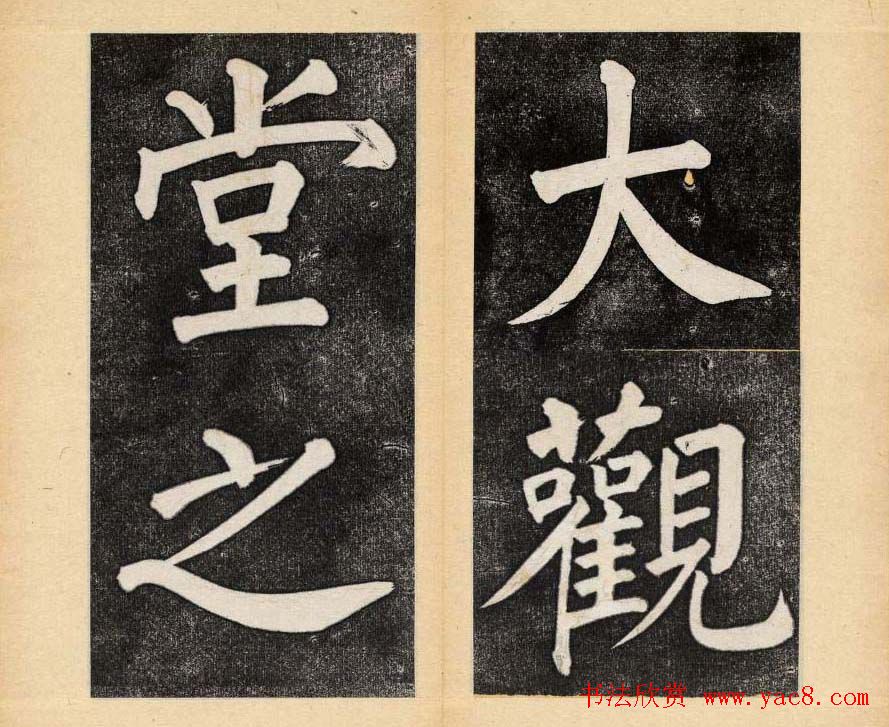 大觀
堂之
书法欣赏 www.yac8.com